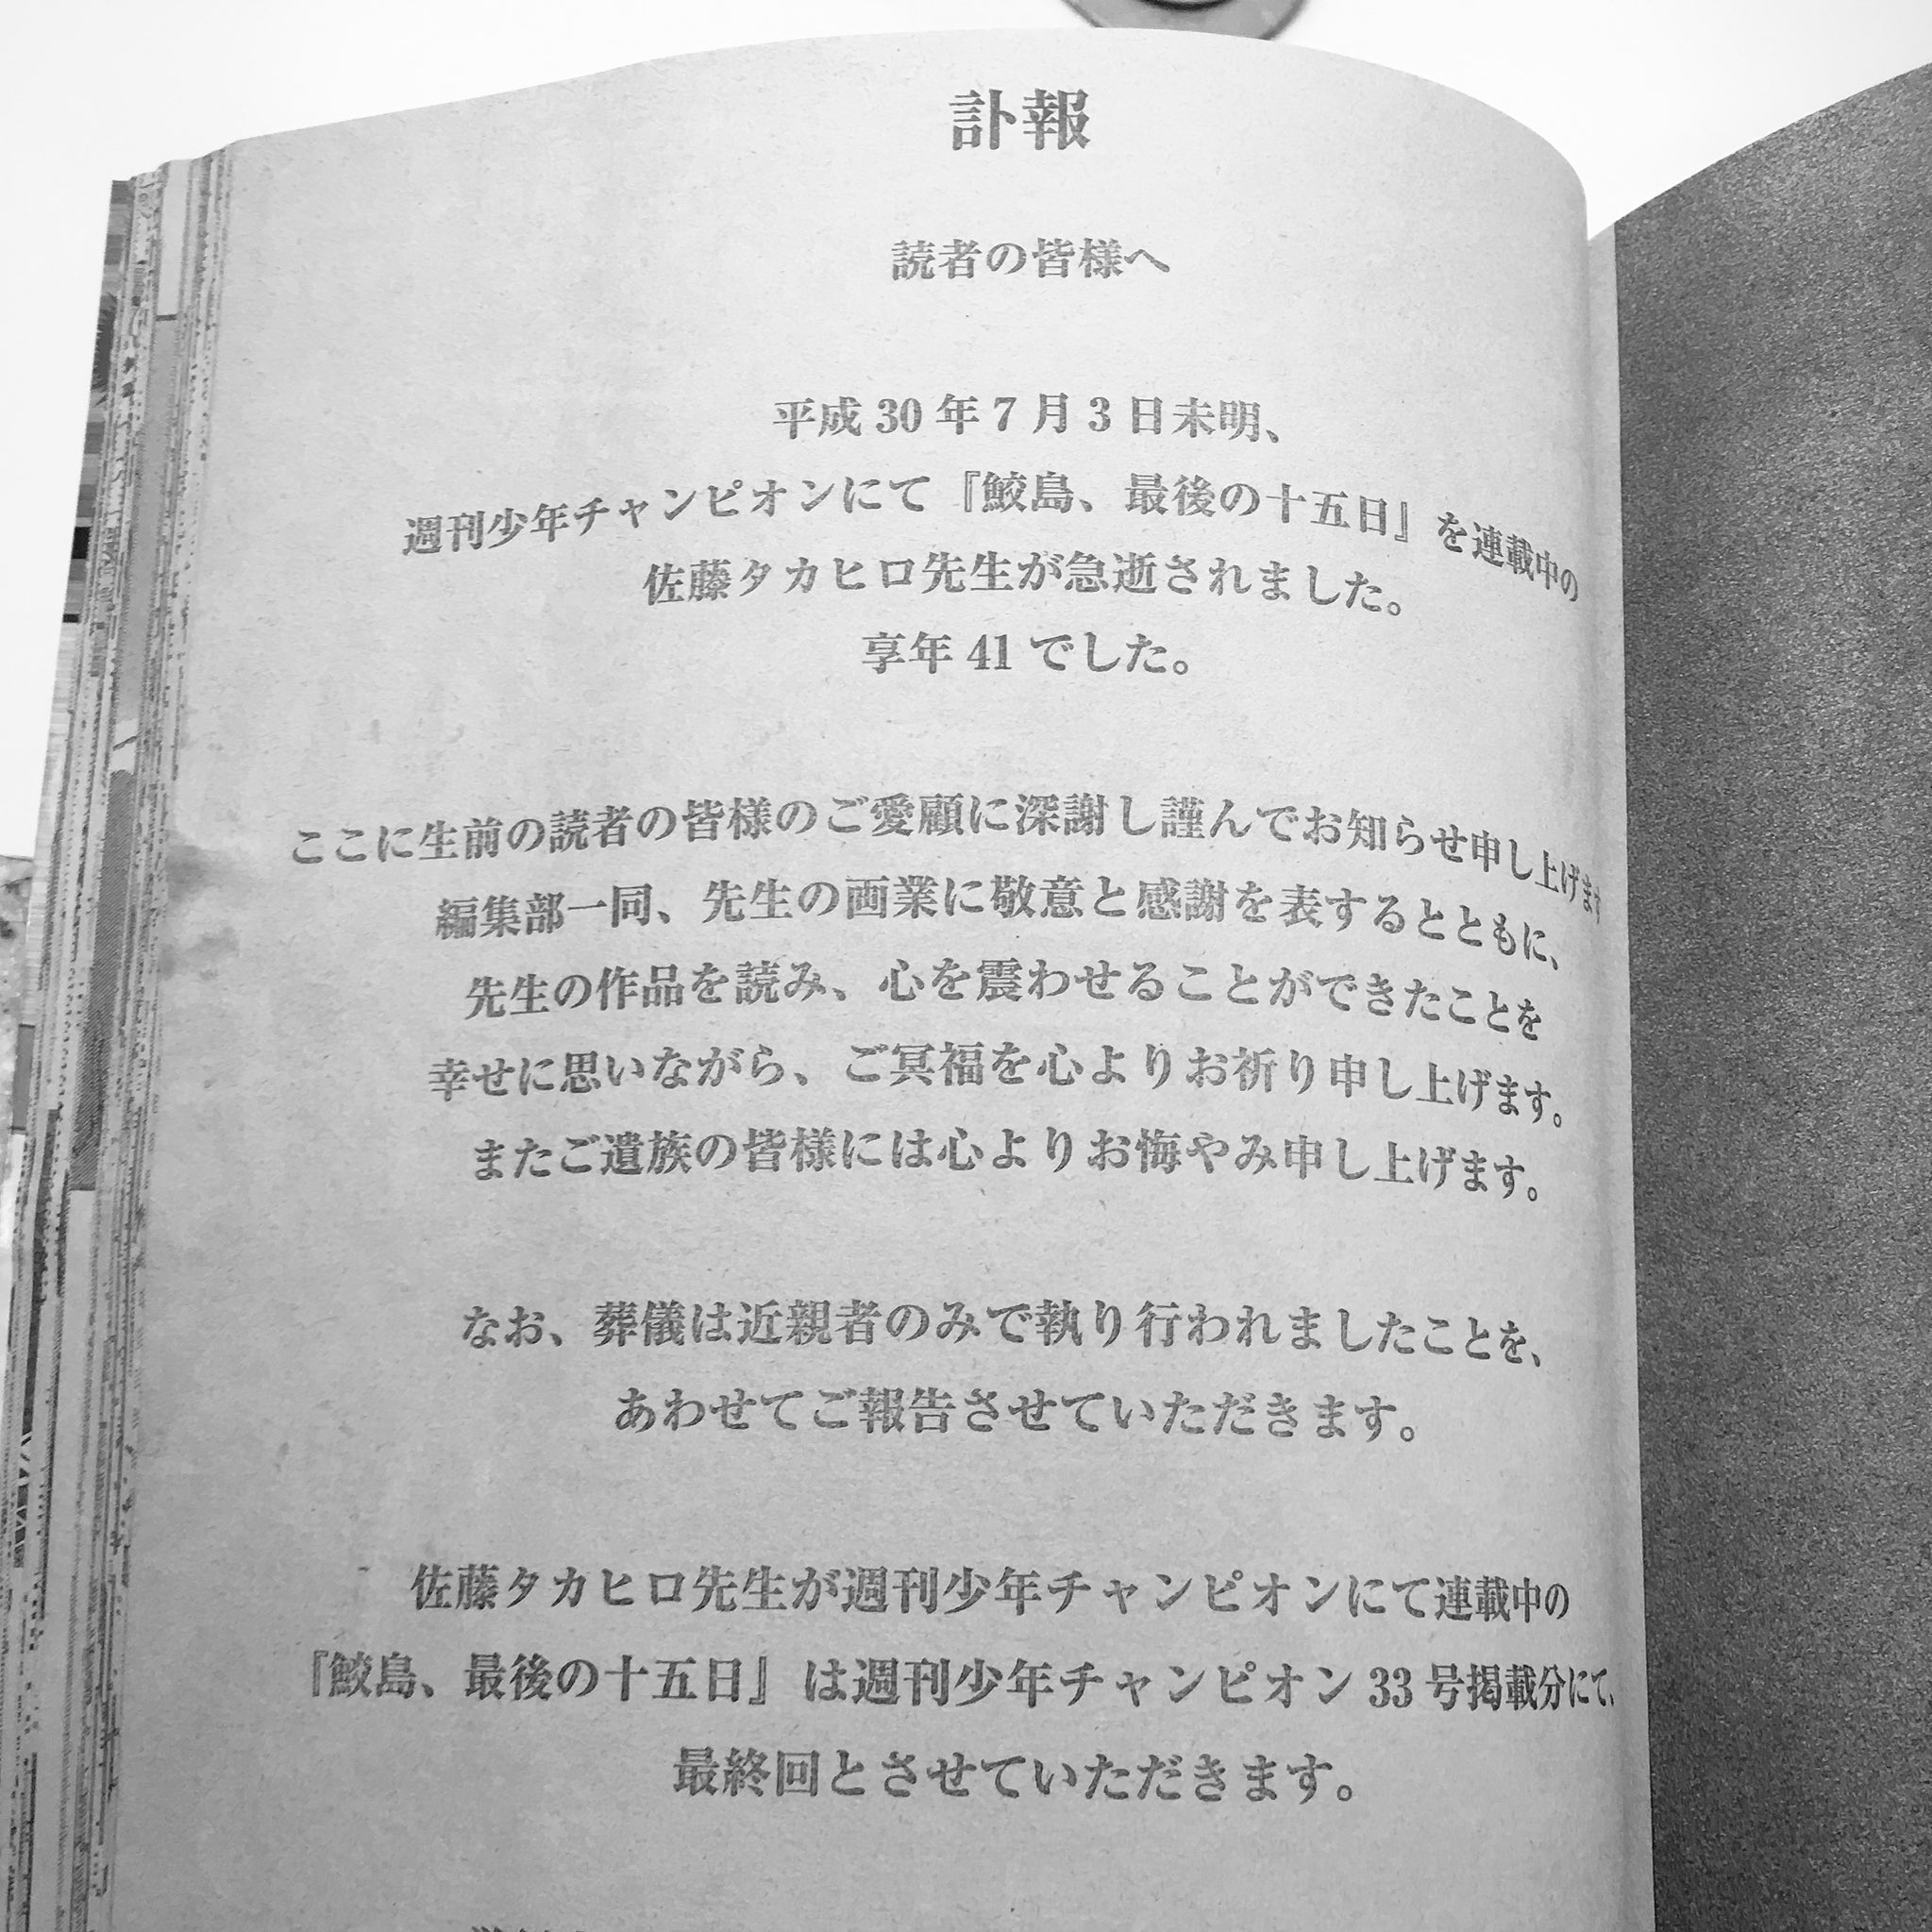 訃報
読者の皆様へ
平成30年7月3日未明、
週刊少年チャンピオンにて『鮫島、最後の十五日』を連載中の
佐藤タカヒロ先生が急逝されました。
享年41でした。
ここに生前の読者の皆様のご愛顧に深謝し謹んでお知らせ申し上げます
編集部一同、先生の画業に敬意と感謝を表するとともに、
先生の作品を読み、心を震わせることができたことを
幸せに思いながら、ご冥福を心よりお祈り申し上げます。
またご遺族の皆様には心よりお悔やみ申し上げます。
なお、葬儀は近親者のみで執り行われましたことを、
あわせてご報告させていただきます。
佐藤タカヒロ先生が週刊少年チャンピオンにて連載中の
『鮫島、最後の十五日』は週刊少年チャンピオン33号掲載分にて、
最終回とさせていただきます。